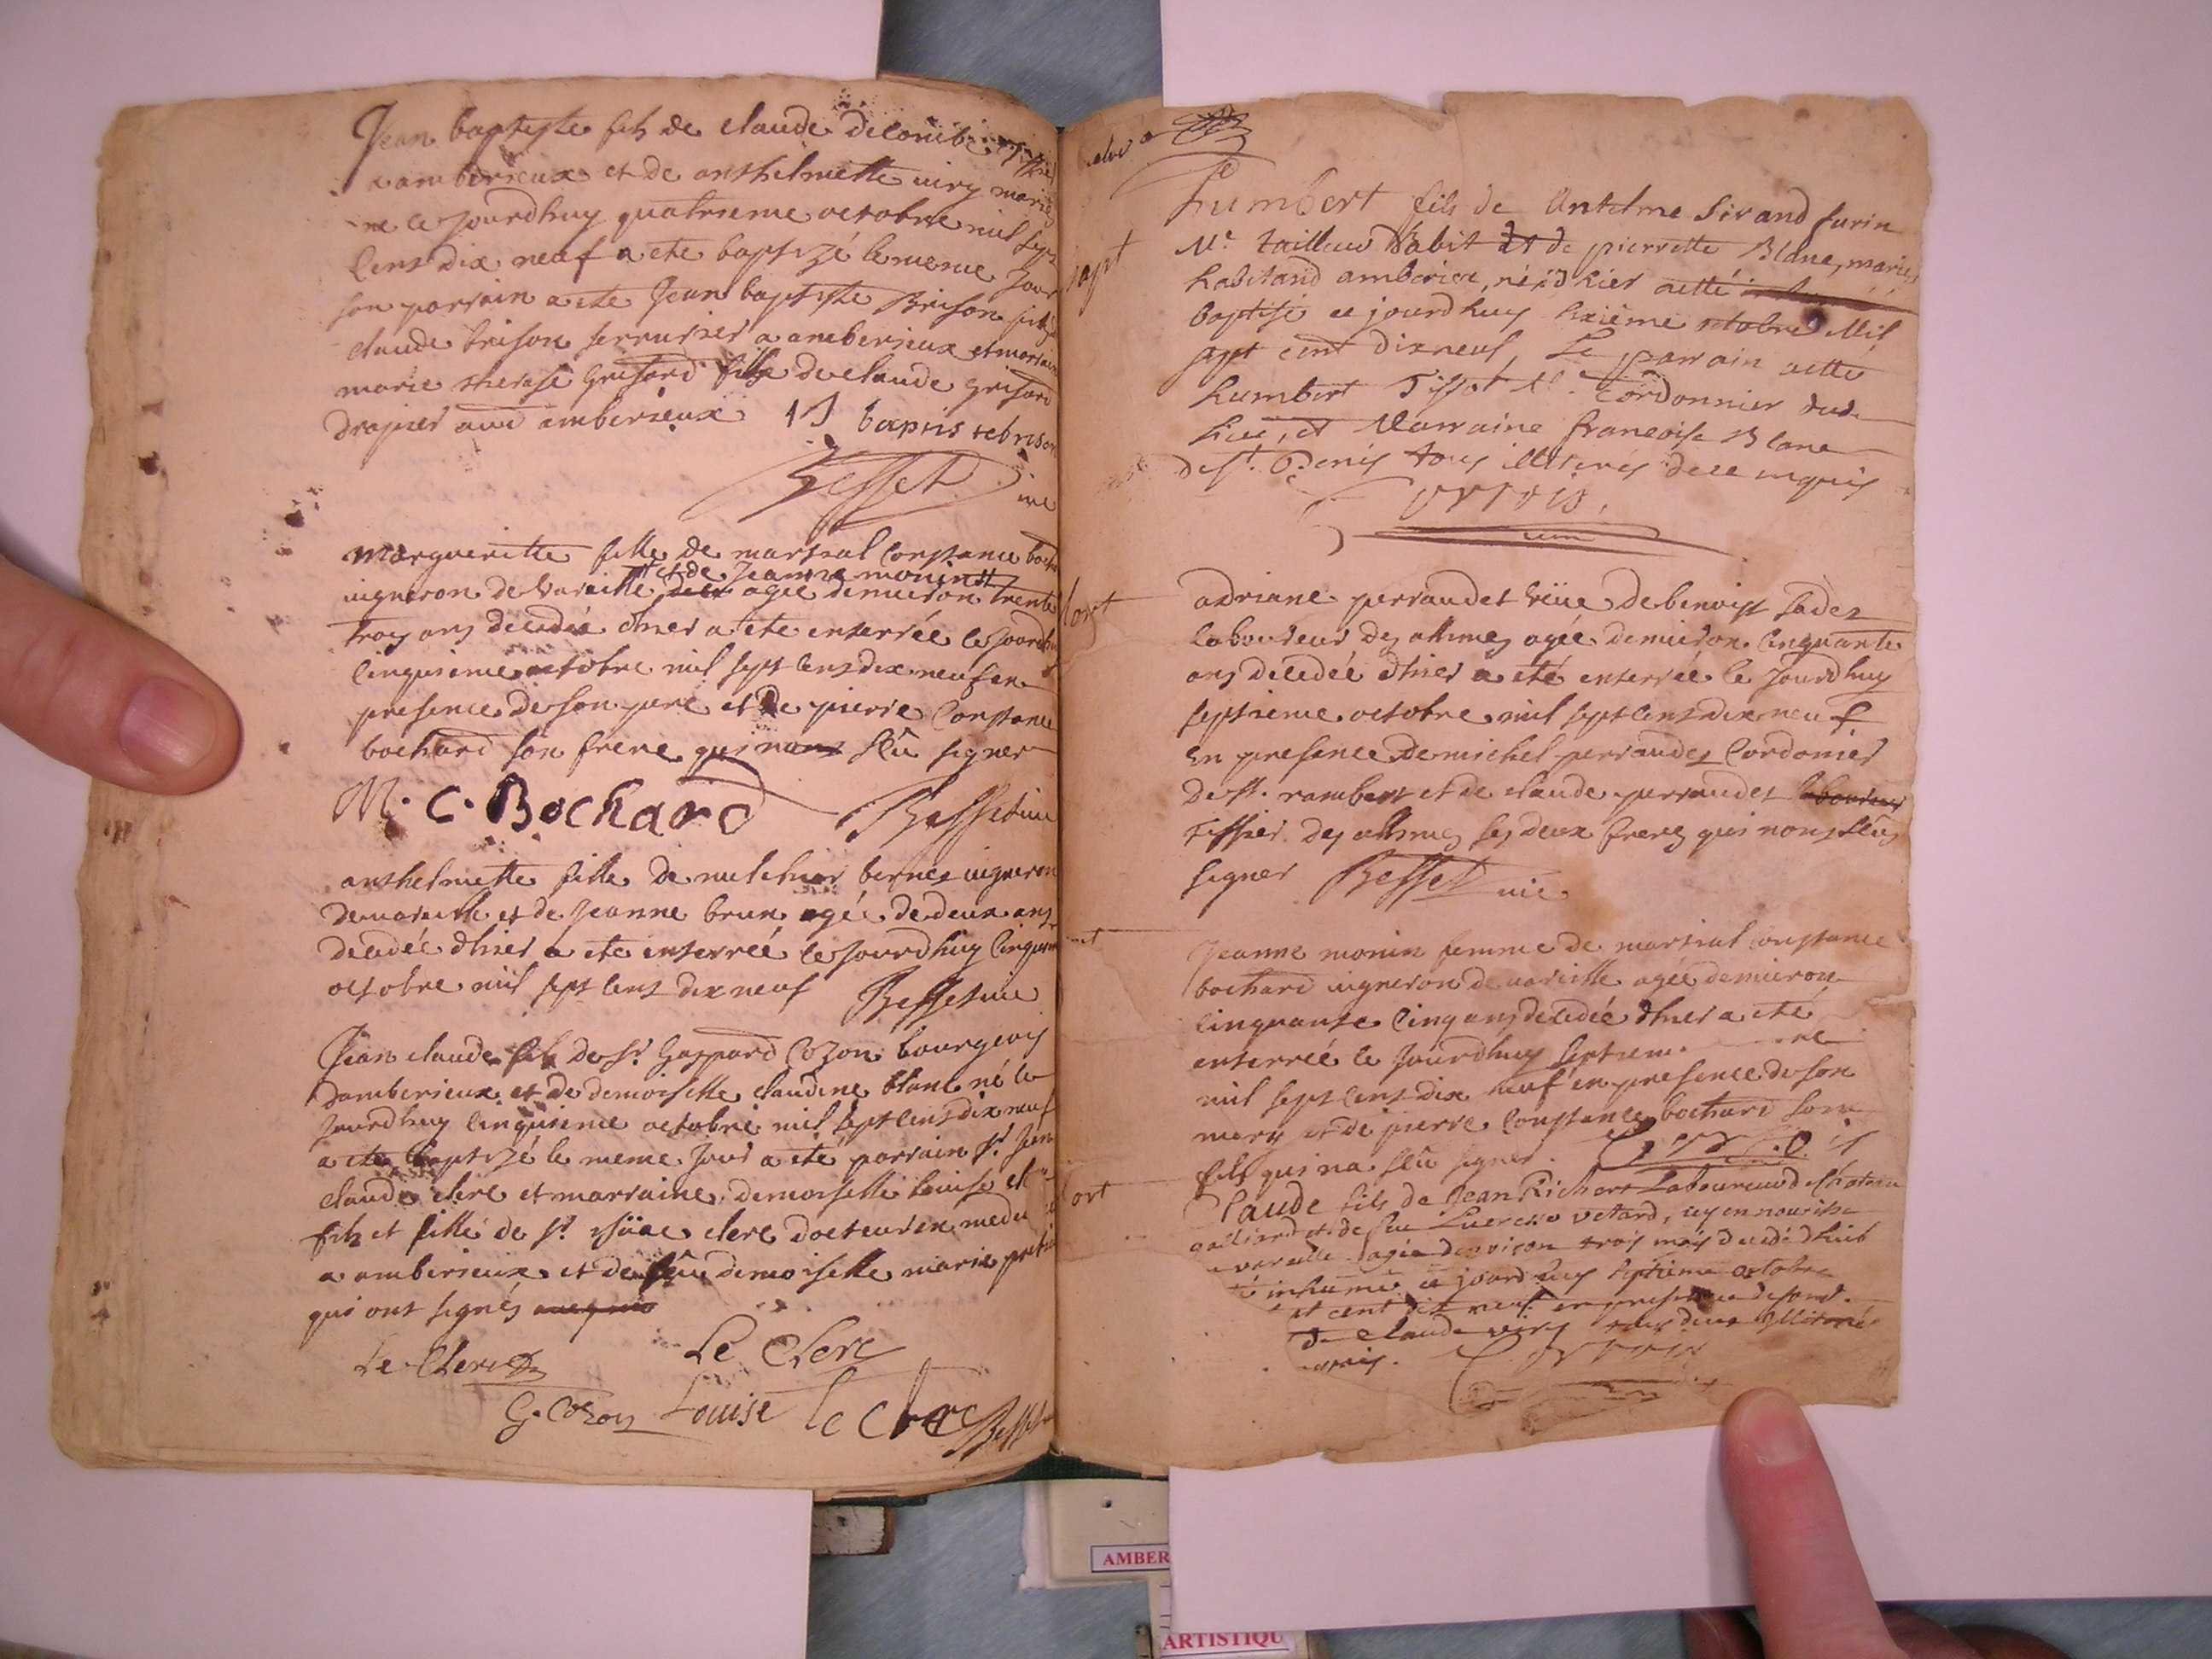 Jean baptiste fils de claude
a amberieux et de anthelmette viry mariés
né ce jourdhuy quatrieme octobre mil sept
cens dix neuf a ete baptizé le meme jour
son parrain a ete Jean baptiste Brison fils de
claude brison serrurier a amberieux et marraine
marie therese Grisard fille de claude grisard
drapier aud amberieux J baptiste brison
Besset vic
marguerite fille de martial constance boch
et de Jeanne monin
vigneron de vareille agée denuiron trente
troys ans decedée dhier a ete enterrée ce jourdhuy
cinquieme octobre mil sept cens dix neuf en
presence de son pere et de pierre constance
bochard son frere qui na sceu signer
M. C. Bochard Besset vic
anthelmette fille de melchior bernes vigneron
de vareille et de Jeanne brun agée de deux ans
decedée dhier a ete enterrée ce jourdhuy cinquieme
octobre mil sept cens dix neuf Besset vic
Jean claude fils de sr gaspard Cozon bourgeois
damberieux et de demoiselle claudine blanc né ce
jourdhuy cinquieme octobre mil sept cens dix neuf
a ete baptizé le meme jour a eté parrain sr Jean
claude clerc et marraine demoiselle louise cl
fils et fille de sr clerc docteur en mede
a amberieux et de demoiselle marie
qui ont signés
Le Clerc Le Clerc
G. Cozon Louise le clerc Besset
humbert fils de Antelme Sirand furin
Mr. tailleur dabit et de pierrette Blanc, mariés
habitand amberieu, né dhier aetté
baptisé ce jourdhuy sixième octobre Mil
sept cent dixneuf, Le parrain aetté
humbert Tissot Mr. Cordonnier dud.
lieu, et Marraine francoise Blanc
de st. Denis tous illiterés de ce enquis
bapt
adriane perraudet veüe de benoist
laboureur des allimes agée denuiron cinquante
ans decedée dhier a eté enterrée ce jourdhuy
septieme octobre mil sept cens dix neuf
en presence de michel perraudet cordonier
de st. rambert et de claude perraudet laboureur
tissier des allimes ses deux freres qui nont sceus
signer Besset vic
mort
Jeanne monin femme de martial constance
bochard vigneron de vareille agée denuiron
cinquante cinq ans decedée dhier a eté
enterrée ce jourdhuy septiem re
mil sept cens dix neuf en presence de son
mary et de pierre constance bochard son
fils qui na sceu signer.
Claude fils de Jean Richert Laboureur de Chateau
gaillard et de feu vetard, en nourisse
vareille agée denviron trois mois decedé dhier
inhumé ce jourdhuy septieme octobre
cent dix neuf en presence de
de Claude viry tous deux illiterés
ort
AMBER
ARTISTIQU